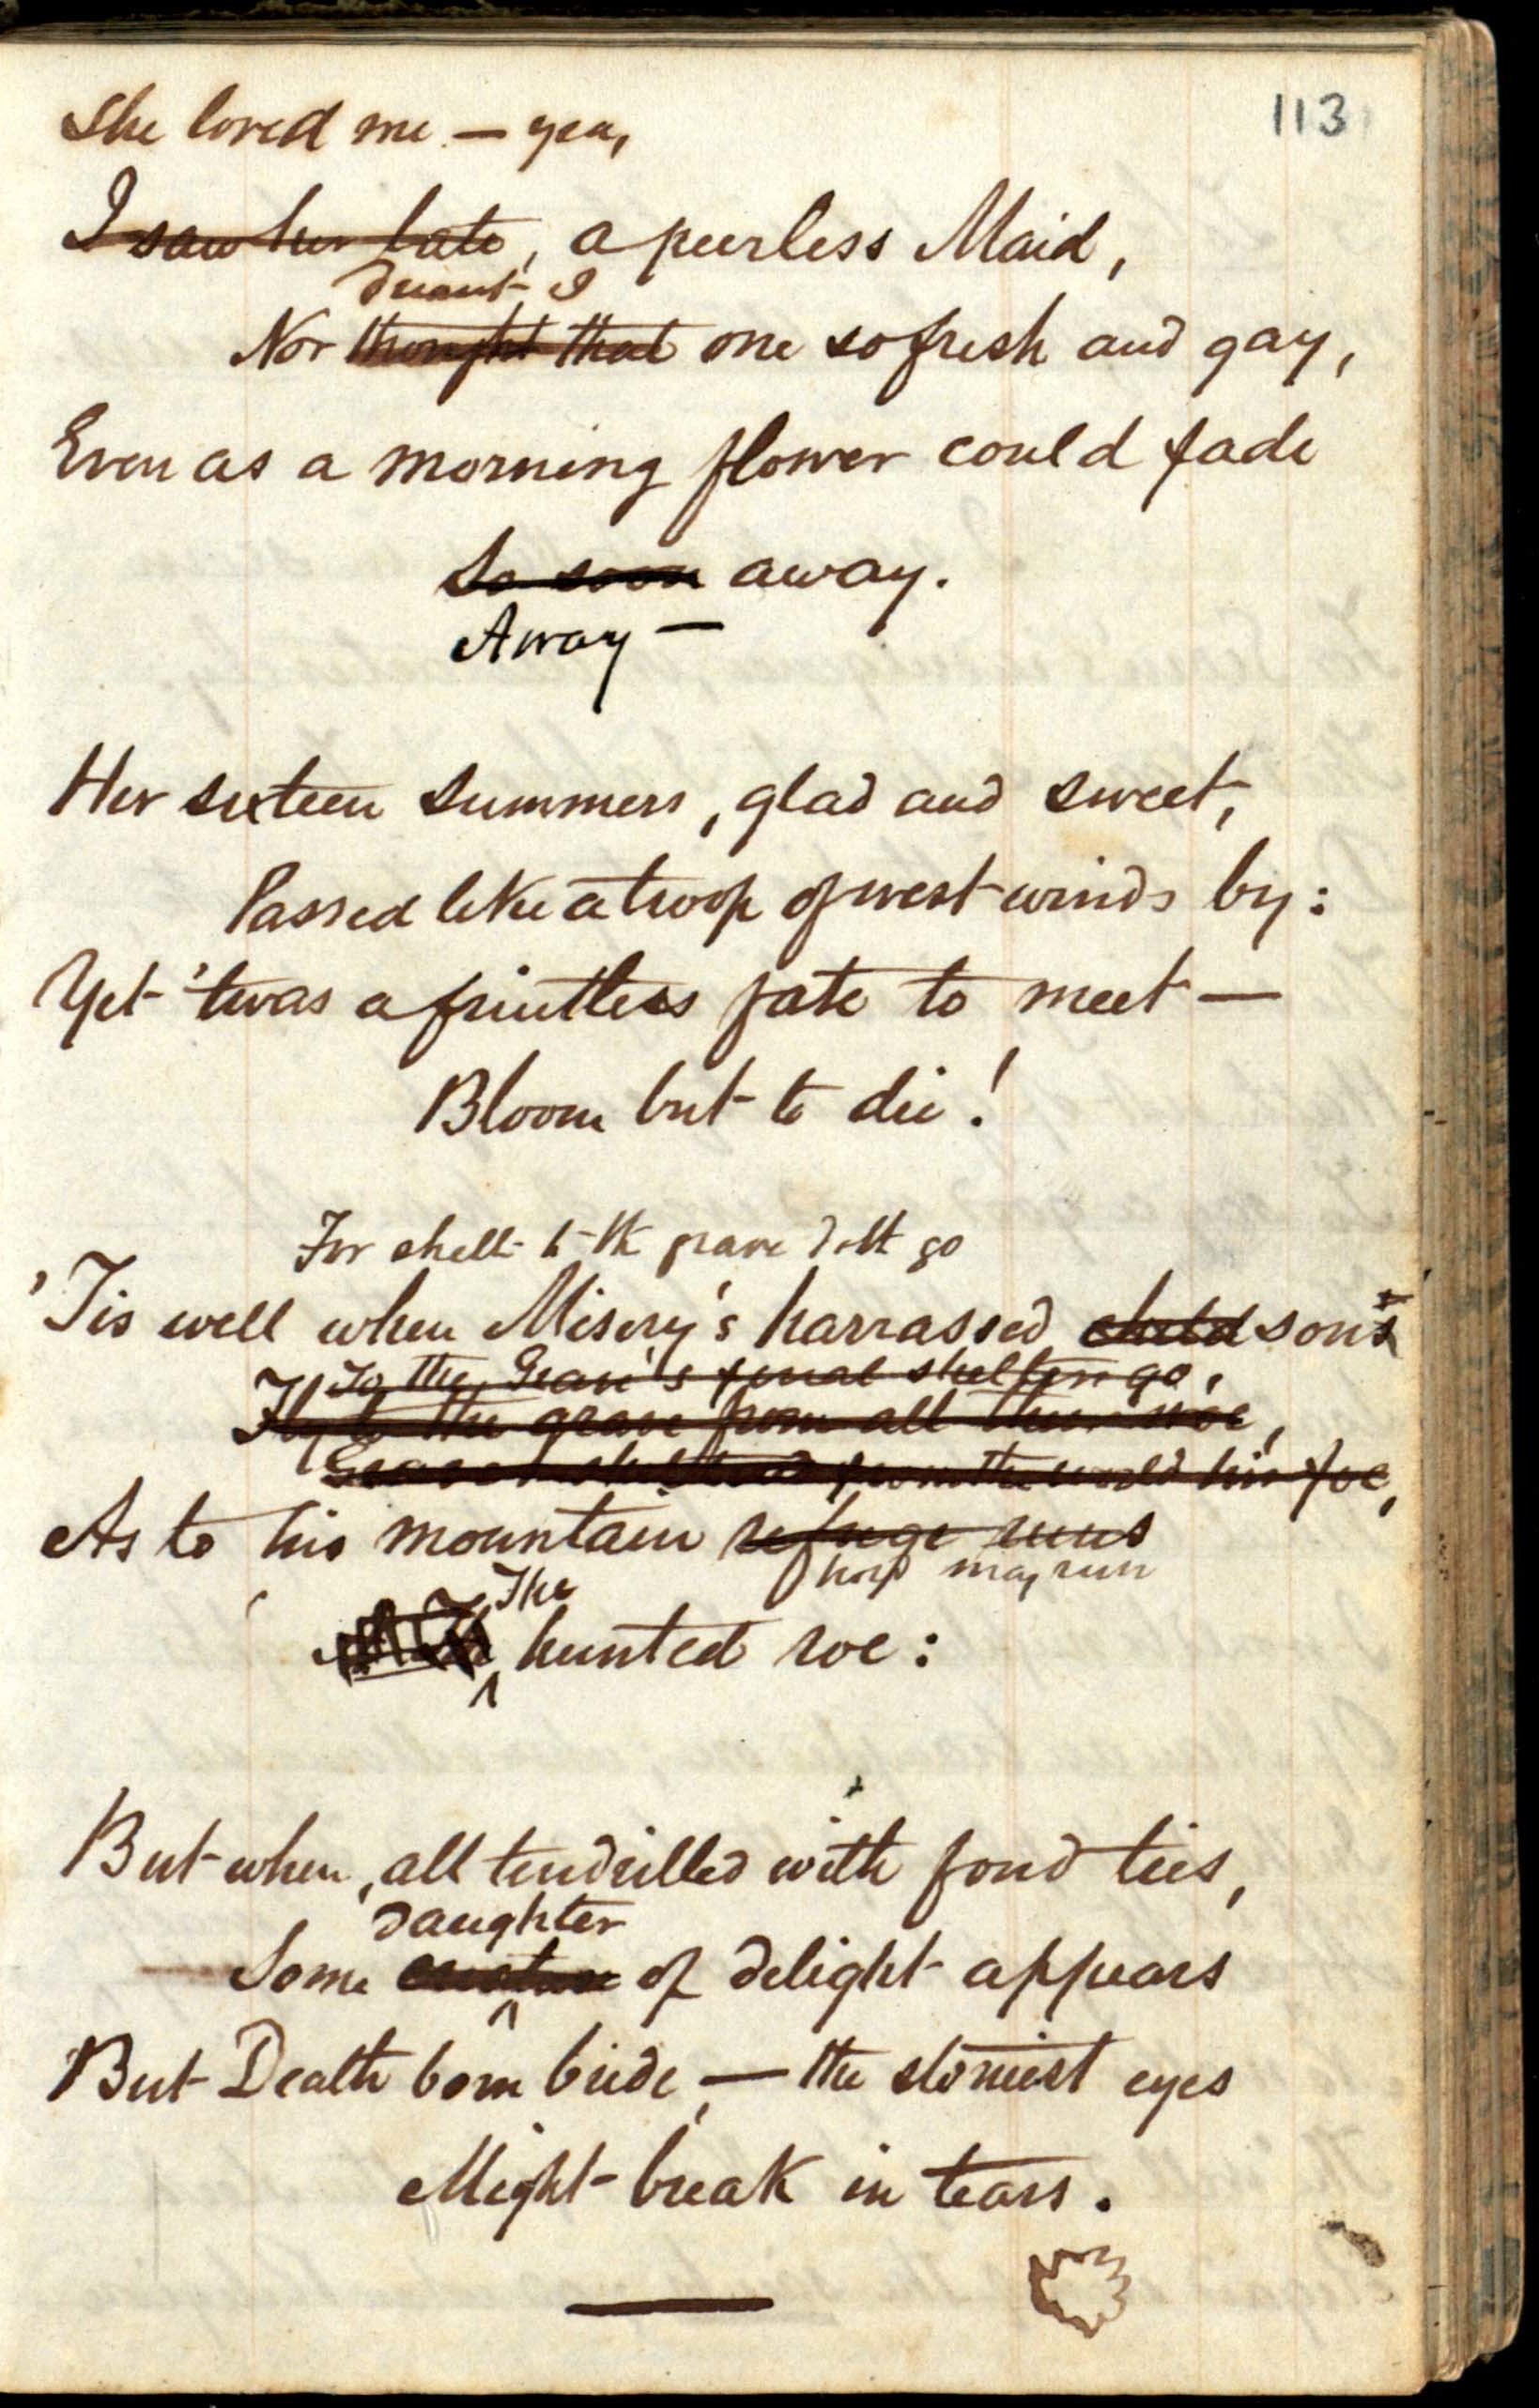 113
She loved me — yea,
I saw her late, a peerless Maid,
Dreamt I
Nor thought that one so fresh and gay,
Even as a morning flower could fade
So soon away.
Away —
Her sixteen summers, glad and sweet,
Passed like a troop of west winds by:
Yet 'twas a fruitless fate to meet —
Bloom but to die!
For shelt to the grave doth go
'Tis well when Misery's harrassed child son's
To the Grave's final shelter go,
Fly to the grave from all their woe,
from the world his foe,
As to his mountain refuge runs
may run
The
hunted roe:
But when, all tendrilled with fond ties,
daughter
Some creature of delight appears
But Death born bride, — the stoniest eyes
Might break in tears.